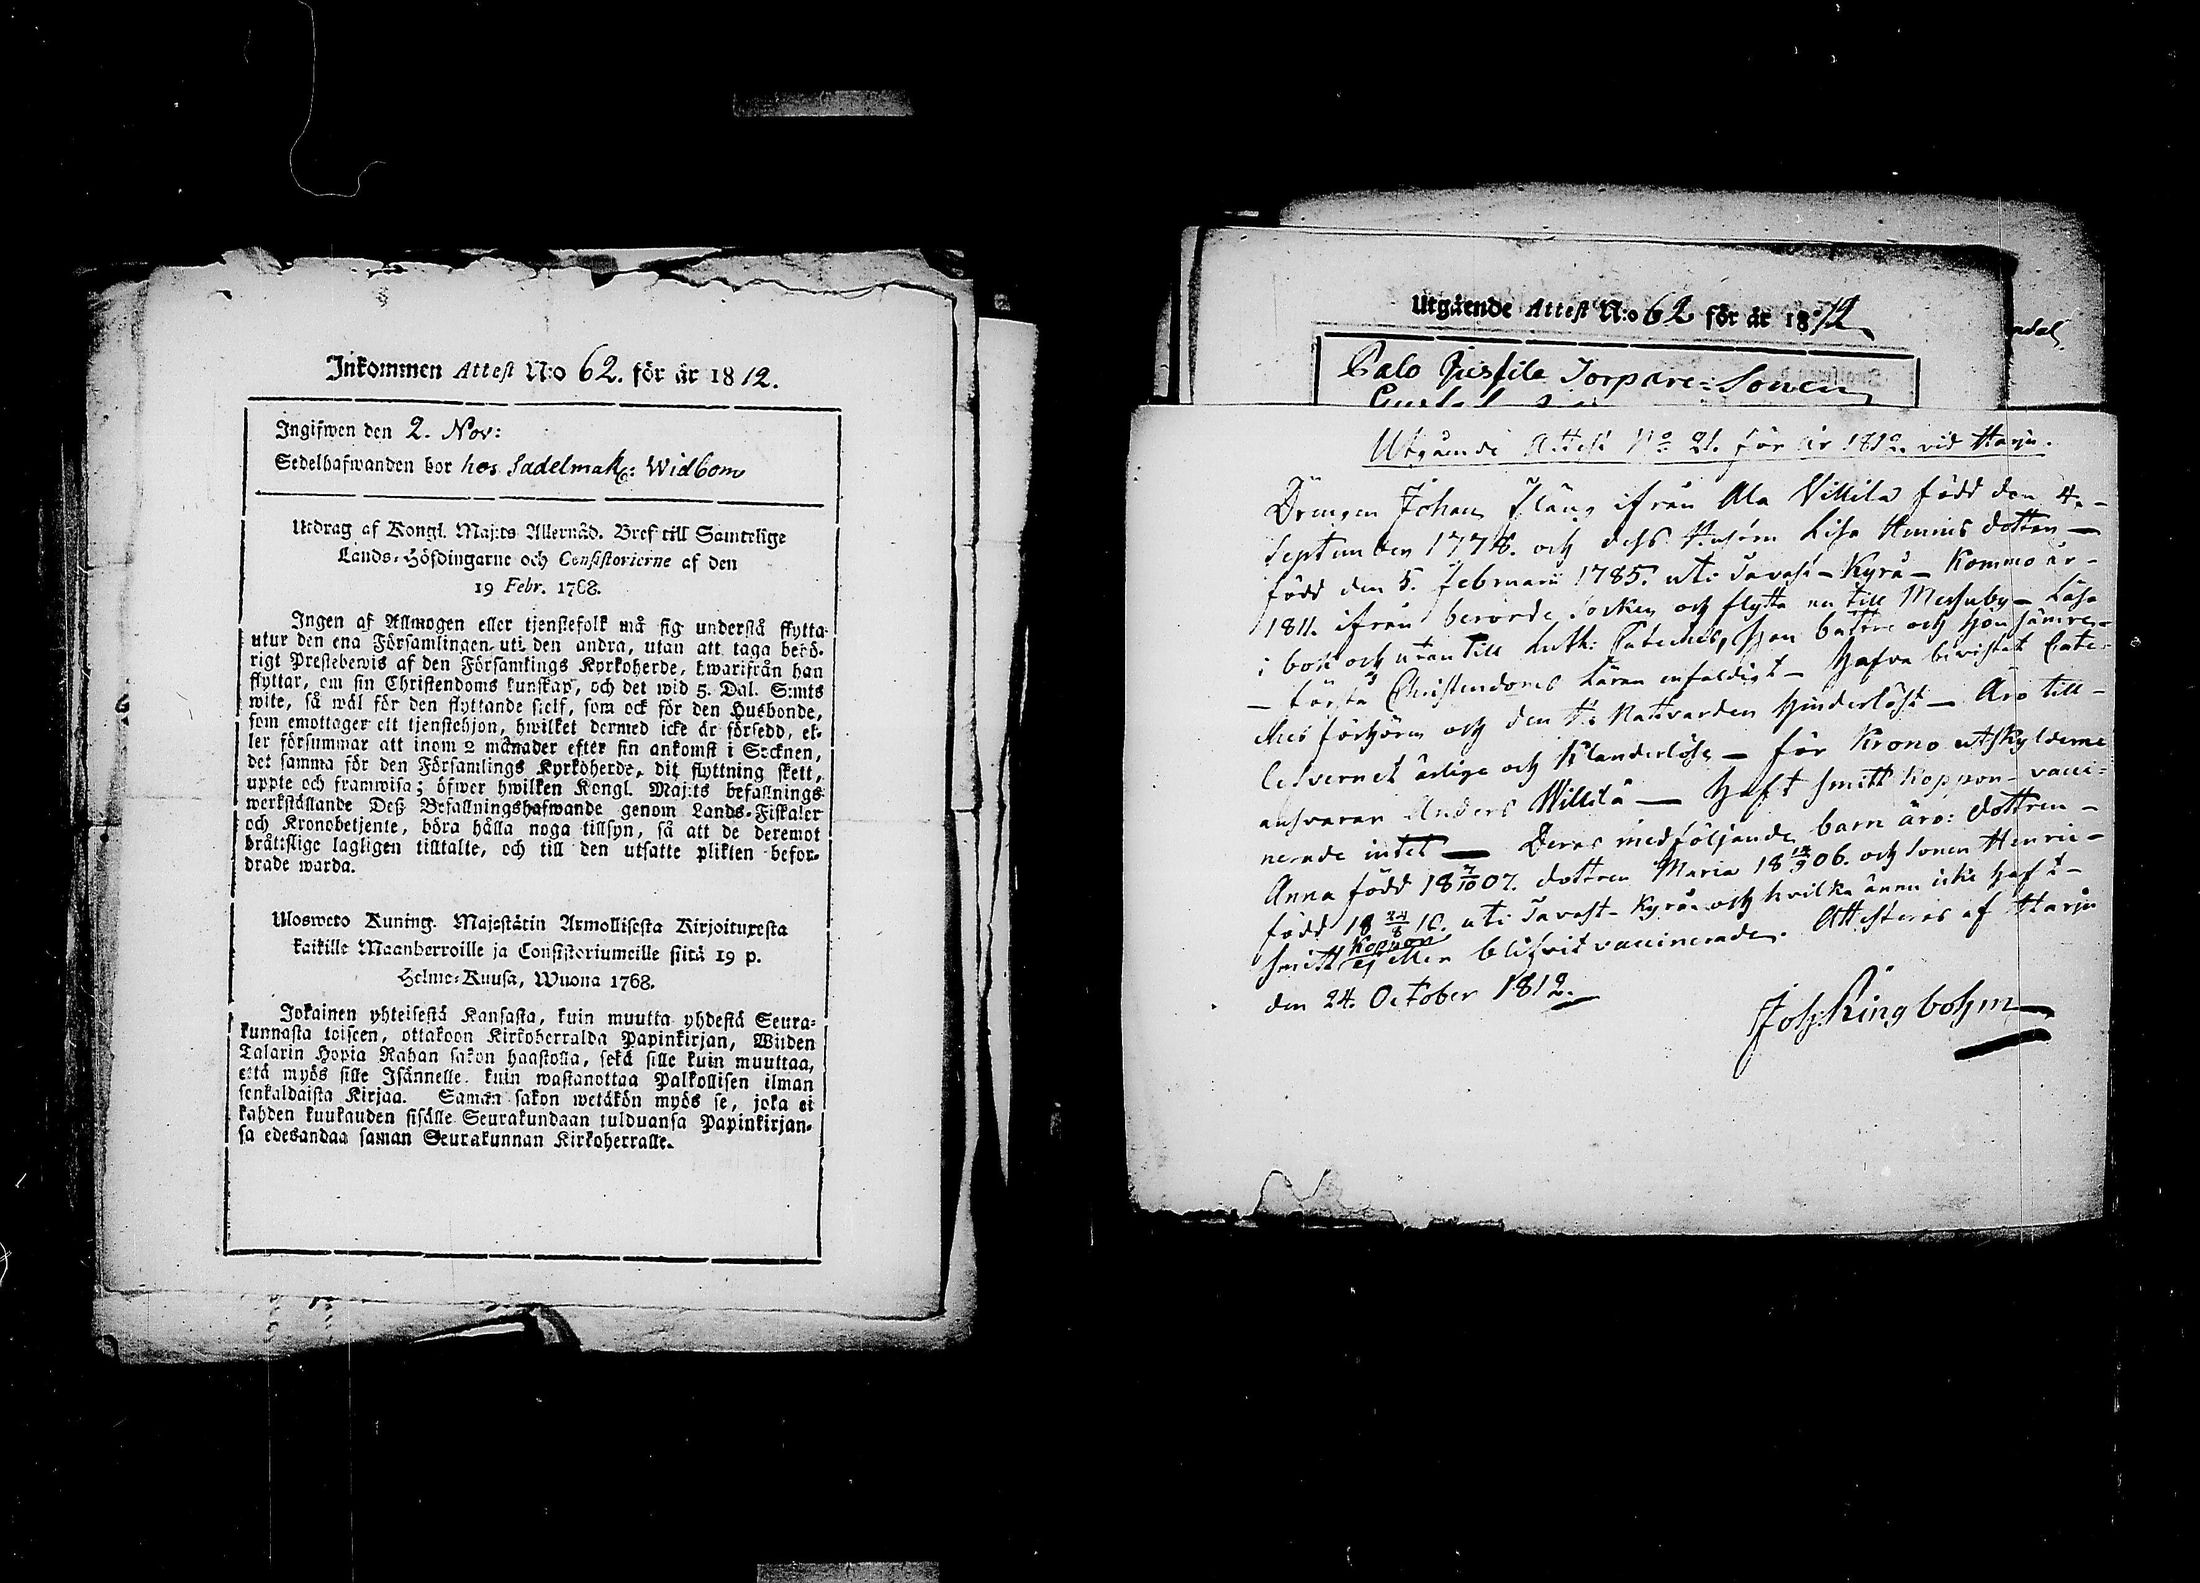 Inkommen Attest N:o 62. för år 1812.
Ingifwen den 2. Nov:
Sedelhafwanden bor hos Sadelmak: Widbom
Utdrag af Kongl. Maj:ts Allernåd. Bref till Samtelige
Lands-Höfdingarne och Consistorierne af den
19 Febr. 1768.
Ingen af Allmogen eller tjenstefolk må sig understå flytta
utur den ena Församlingen uti den andra, utan att taga behö-
rigt Prestebewis af den Församlings Kyrkoherde, hwarifrån han
flyttar, om sin Christendoms kunskap, och det wid 5. Dal. S:mts
wite, så wäl för den flyttande sielf, som ock för den Husbonde,
som emottager ett tjenstehjon, hwilket dermed icke är försedd, el-
ler försummar att inom 2 månader efter sin ankomst i Socknen,
det samma för den Församlings Kyrkoherde, dit flyttning skett,
uppte och framwisa; öfwer hwilken Kongl. Maj:ts befallnings
werkställande Deß Befallningshafwande genom Lands-Fiskaler
och Kronobetjente, böra hålla noga tillsyn, så att de deremot
bråttslige lagligen tilltalte, och till den utsatte plikten befor-
drade warda.
Ulosweto Kuning. Majestätin Armollisesta Kirjoituxesta
kaikille Maanherroille ja Consistoriumeille siitä 19 p.
Helme-Kuusa, Wuona 1768.
Jokainen yhteisestä Kansasta, kuin muutta yhdestä Seura-
kunnasta toiseen, ottakoon Kirkoherralda Papinkirjan, Wiiden
Talarin Hopia Rahan sakon haastolla, sekä sille kuin muuttaa,
että myös sille Isännelle kuin wastanottaa Palkollisen ilman
senkaldaista Kirjaa. Saman sakon wetäkön myös se, joka ei
kahden kuukauden sisälle Seurakundaan tulduansa Papinkirjan-
sa edesandaa saman Seurakunnan Kirkoherralle.
Utgående Attest N:o 62 för år 1812
Torpare-Sonen
Utgående Attest No 21. för år 1812. vid Harju.
Drengen Johan Fläng ifrån Ala Villila född den 4.-
September 1778. och dess Hustru Lisa Henrics dotter —
född den 5. Februarii 1785. uti Tavast-Kyrå - Kommo år-
1811. ifrån berörde Socken och flytta nu till Messuby - Läsa
i bok och utan till Luth: Cateches, han battre och hon sämre-
- förstå Christendoms Läran enfaldigt - Hafva bevistat Cate-
ches förhören och den H. Nattvarden hinderlöst - Äro till-
lefvernet ärlige och klanderlöse - för Krono utskylderne
ansvarar Anders Willilä — Haft smitt koppon - vacci-
nerade intet — Deras medföljande barn äro: dottren -
Anna född 18 7/10 07. dottren Maria 18 14/9 06. och Sonen Henric -
född 18 24/8 10. uti Tavast-Kyrå och hvilka ännu icke haft -
smitt Koppor ej eller blifvit vaccinerade. Attesteras af Harju
den 24. October 1812.
Joh: Ringbohm